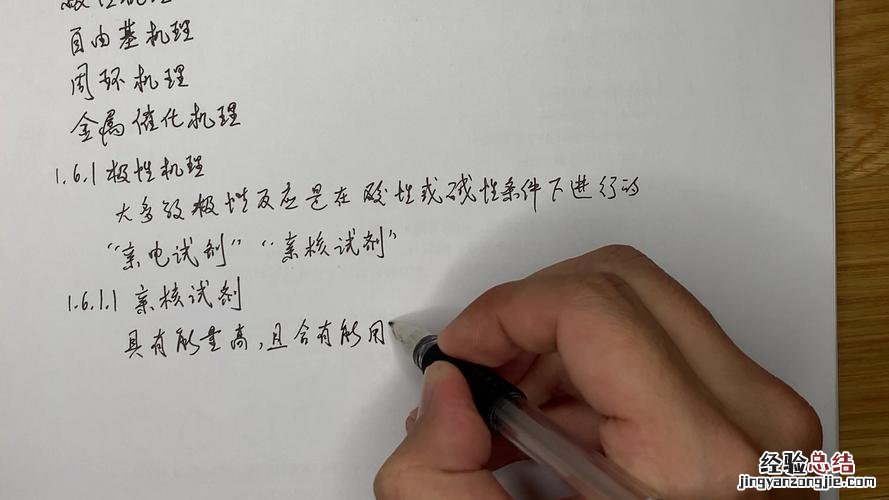 极性机理
自由基机理
周环机理
金属催化机理
1.6.1 极性机理
大多数极性反应是在酸性或碱性条件下进行的
"亲电试剂" "亲核试剂"
1.6.1.1 亲核试剂
具有能量高,且含有能用
经验总结
jingyanzongjie.com